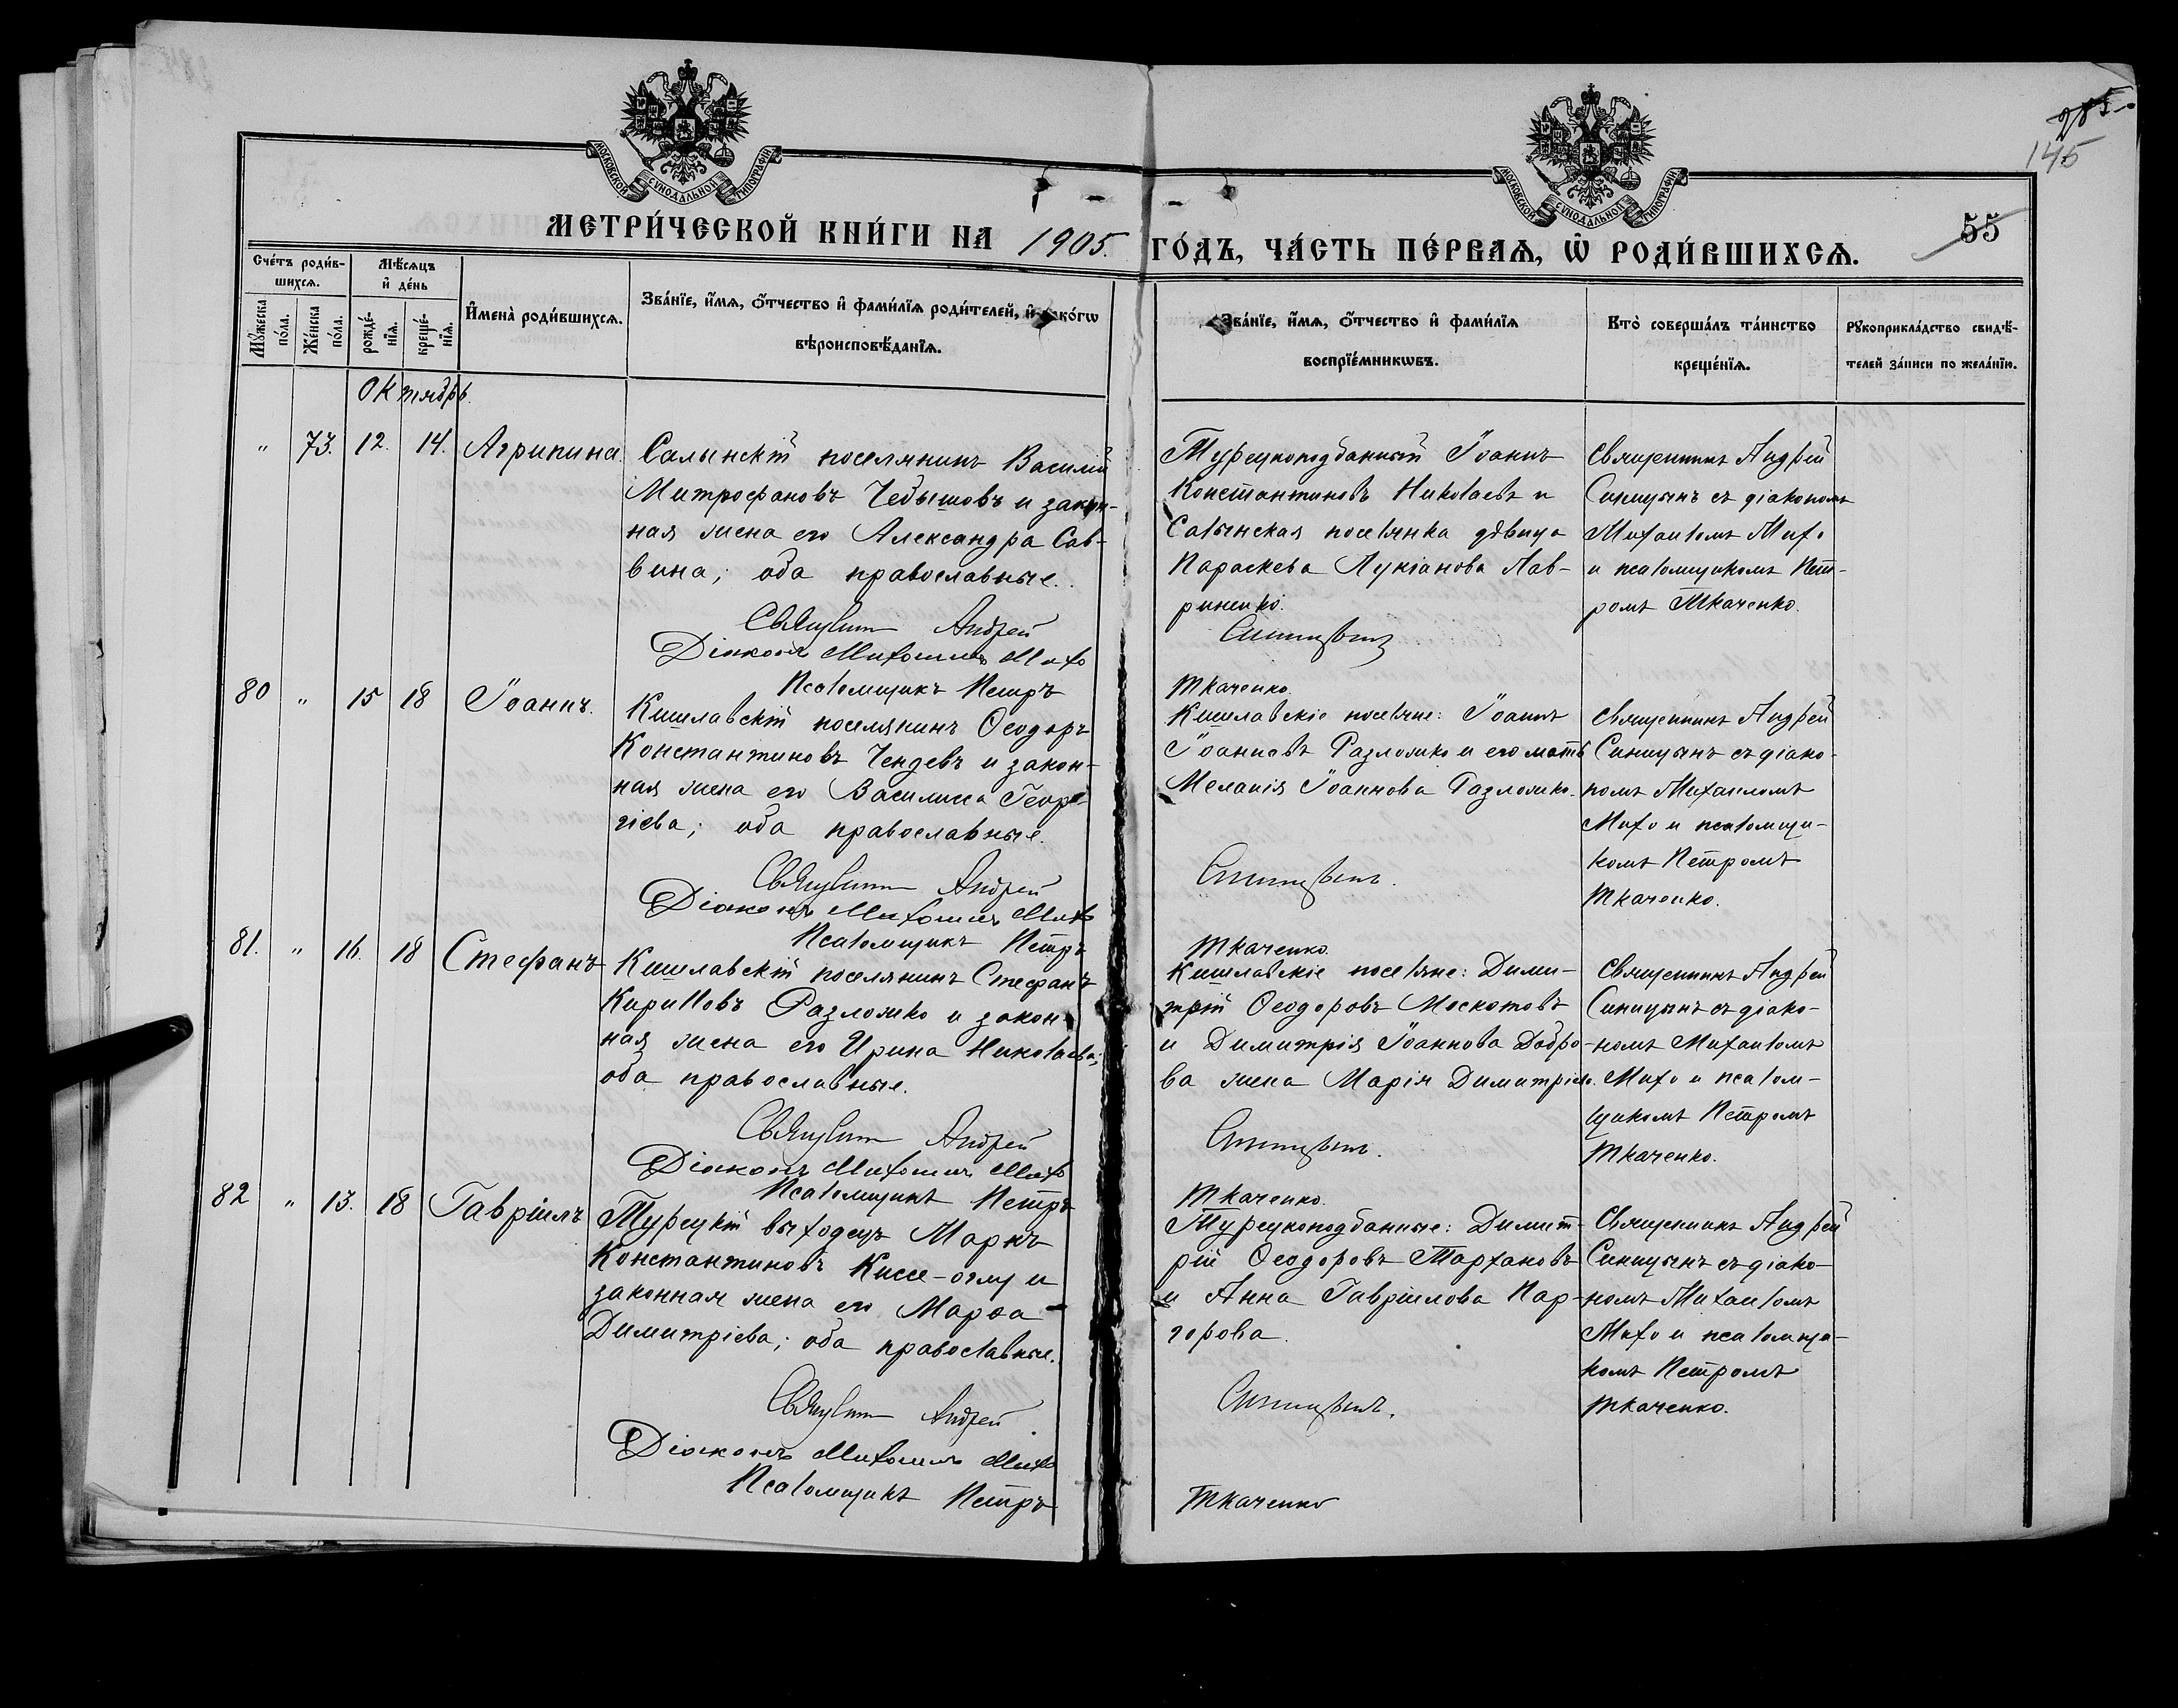 285
145
МОСКОВСКОЙ СѴНОДАЛЬНОЙ ТИПОГРАФІИ
МОСКОВСКОЙ СѴНОДАЛЬНОЙ ТИПОГРАФІИ
МЕТРИ́ЧЕСКОЙ КНИ́ГИ НА 1905. ГО́ДЪ, ЧА́СТЬ ПЕ́РВАѦ, Ѡ҆ РОДИ́ВШИХСѦ.
55
Сче́тъ роди́в-
шихсѧ.
Мꙋ́жеска по́ла.
Же́нска по́ла.
Мѣ́сѧцъ
и҆ де́нь
рожде́-нїѧ.
креще́-нїѧ.
И҆мена̀ роди́вшихсѧ.
Зва́нїе, и҆́мѧ, ѻ҆́тчество и҆ фами́лїѧ роди́телей, и҆ како́гѡ
вѣроисповѣ́данїѧ.
Зва́нїе, и҆́мѧ, ѻ҆́тчество и҆ фами́лїѧ
воспрїе́мникѡвъ.
Кто̀ соверша́лъ та́инство
креще́нїѧ.
Рꙋкоприкла́дство свидѣ́-
телей за́писи по жела́нїю.
Октябрь.
" 73. 12. 14. Агрипина.
Салынскій поселянинъ Василій
Митрофановъ Чебышовъ и закон-
ная жена его Александра Сав-
вина; оба православные.
Священникъ Андрей
Діаконъ Михаилъ Михо
Псаломщикъ Петръ
Турецкоподданный Іоаннъ
Константиновъ Николаевъ и
Салынская поселянка дѣвица
Параскева Лукіанова Лав-
риненко.
Синицынъ
Ткаченко.
Священникъ Андрей
Синицынъ съ діакономъ
Михаиломъ Михо
и псаломщикомъ Пет-
ромъ Ткаченко.
80 " 15 18 Іоаннъ.
Кишлавскій поселянинъ Ѳеодоръ
Константиновъ Чендевъ и закон-
ная жена его Василисса Геор-
гіева; оба православные.
Священникъ Андрей
Діаконъ Михаилъ Михо
Псаломщикъ Петръ
Кишлавскіе поселяне: Іоаннъ
Іоанновъ Разложко и его мать
Меланія Іоаннова Разложко.
Синицынъ.
Ткаченко.
Священникъ Андрей
Синицынъ съ діако-
номъ Михаиломъ
Михо и псаломщи-
комъ Петромъ
Ткаченко.
81. " 16. 18 Стефанъ
Кишлавскій поселянинъ Стефанъ
Кирилловъ Разложко и закон-
ная жена его Ирина Николаева;
оба православные.
Священникъ Андрей
Діаконъ Михаилъ Михо
Псаломщикъ Петръ
Кишлавскіе поселяне: Дими-
трій Ѳеодоровъ Москотовъ
и Димитрія Іоаннова Добро-
ва жена Марія Димитріева.
Синицынъ.
Ткаченко.
Священникъ Андрей
Синицынъ съ діако-
номъ Михаиломъ
Михо и псалом-
щикомъ Петромъ
Ткаченко.
82 " 13. 18 Гавріилъ
Турецкій выходецъ Маркъ
Константиновъ Киссе-оглу и
законная жена его Марѳа
Димитріева; оба православные.
Священникъ Андрей
Діаконъ Михаилъ Михо
Псаломщикъ Петръ
Турецкоподданные: Димит-
рій Ѳеодоровъ Тархановъ
и Анна Гавріилова Пар-
горова.
Синицынъ.
Ткаченко
Священникъ Андрей
Синицынъ съ діако-
номъ Михаиломъ
Михо и псаломщи-
комъ Петромъ
Ткаченко.